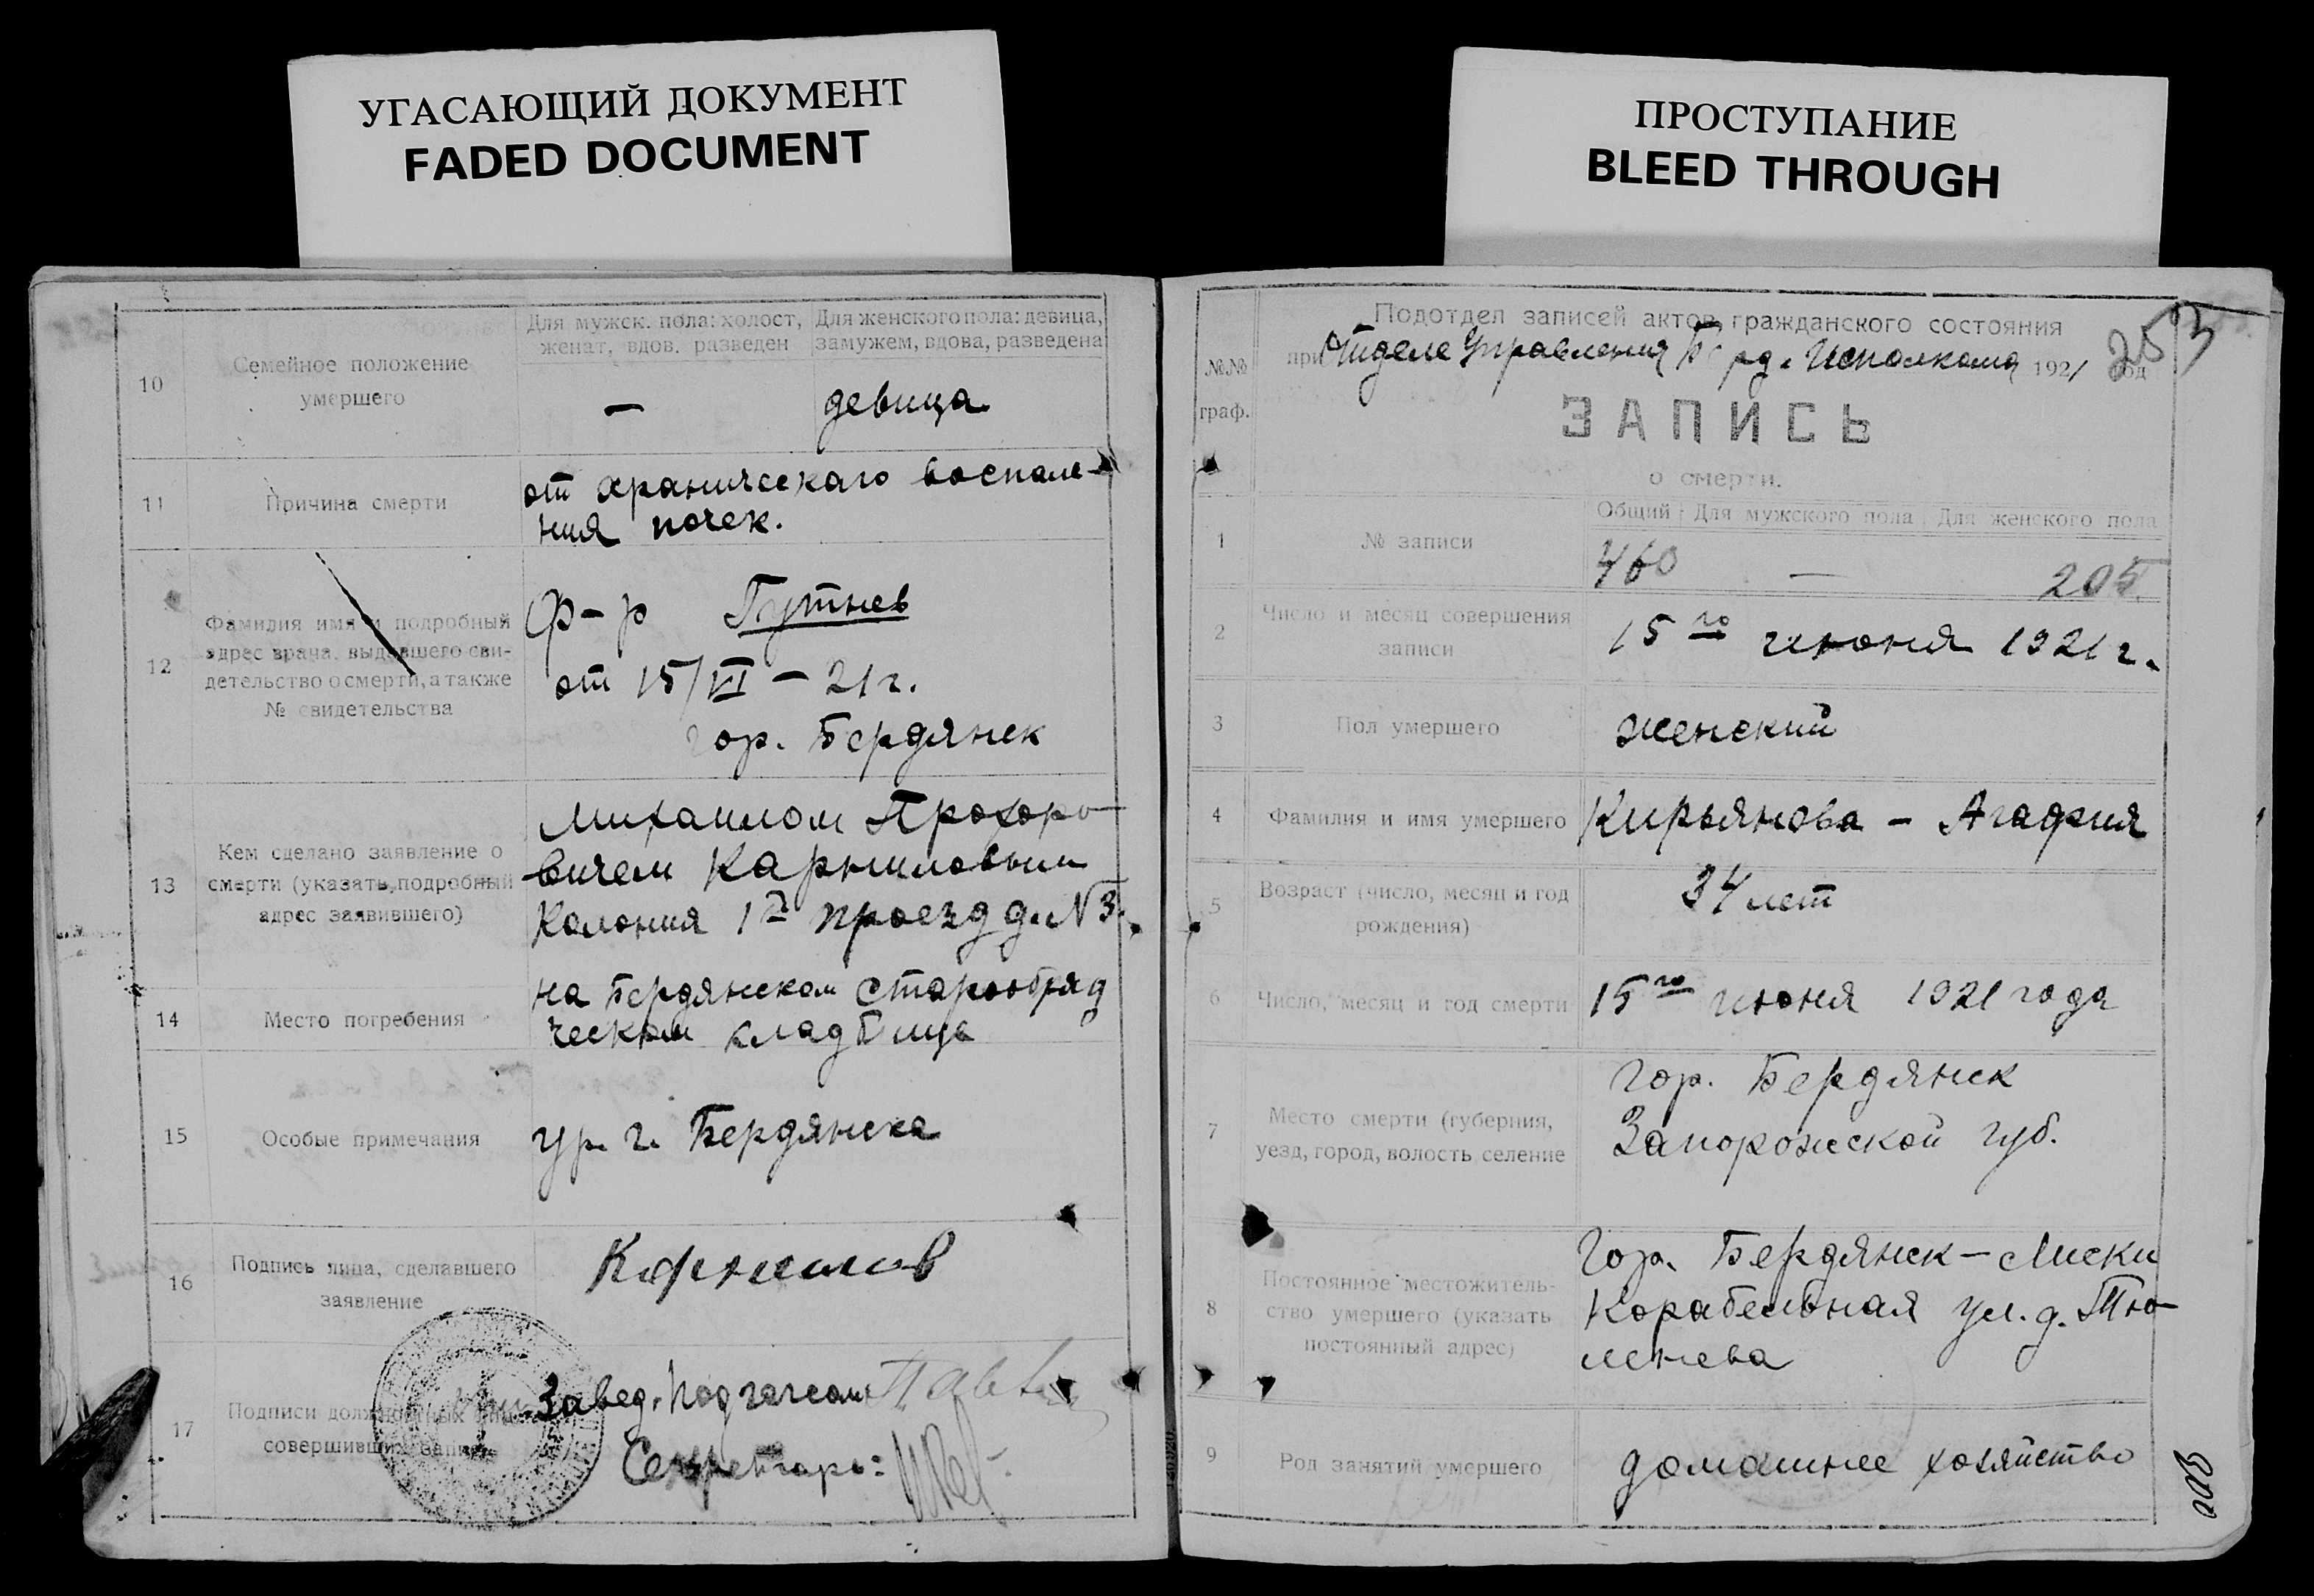 УГАСАЮЩИЙ ДОКУМЕНТ
FADED DOCUMENT
ПРОСТУПАНИЕ
BLEED THROUGH
10
Семейное положение
умершего
Для мужск. пола: холост,
женат, вдов. разведен
Для женского пола: девица,
замужем, вдова, разведена
—
девица
11
Причина смерти
от храническаго воспале-
ния почек.
12
Фамилия имя и подробный
адрес врача, выдавшего сви-
детельство о смерти, а также
№ свидетельства
Ф-р Путнев
от 15/VI – 21 г.
гор. Бердянск
13
Кем сделано заявление о
смерти (указать подробный
адрес заявившего)
Михаилом Прохоро-
вичем Карниловым
Колония 1й проезд д. № 3.
14
Место погребения
на Бердянском старообряд
ческом кладбище
15
Особые примечания
ур. г. Бердянска
16
Подпись лица, сделавшего
заявление
Корнилов
17
Подписи должностных лиц
совершивших запись
Завед. Подзагсом
Секретарь:
Подотдел записей актов гражданского состояния
при Отделе Управления Берд. Исполкома 1921 год
253
№№
граф.
ЗАПИСЬ
о смерти.
1
№ записи
Общий
Для мужского пола
Для женского пола
460
—
205
2
Число и месяц совершения
записи
15го июня 1921 г.
3
Пол умершего
женский
4
Фамилия и имя умершего
Кирьянова – Агафия
5
Возраст (число, месяц и год
рождения)
34 лет
6
Число, месяц и год смерти
15го июня 1921 года
7
Место смерти (губерния,
уезд, город, волость селение
гор. Бердянск
Запорожской губ.
8
Постоянное местожитель-
ство умершего (указать
постоянный адрес)
Гор. Бердянск – Лиски
Корабельная ул. д. Тю-
менева
9
Род занятий умершего
домашнее хозяйство